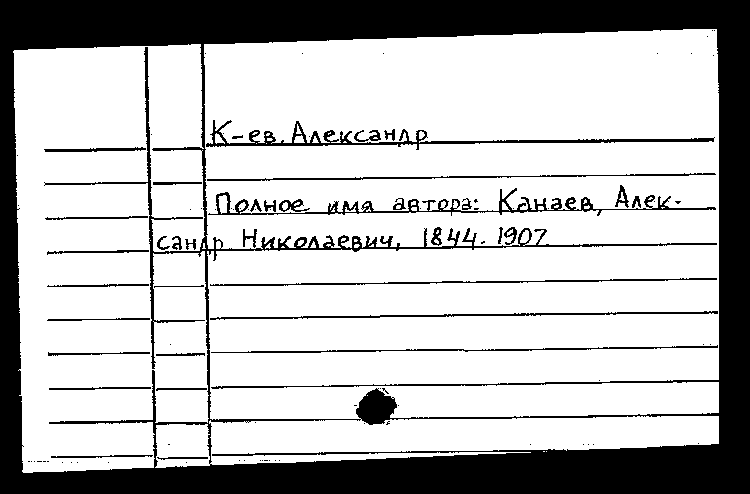 К-ев. Александр
Полное имя автора: Канаев, Алек-
сандр Николаевич, 1844-1907